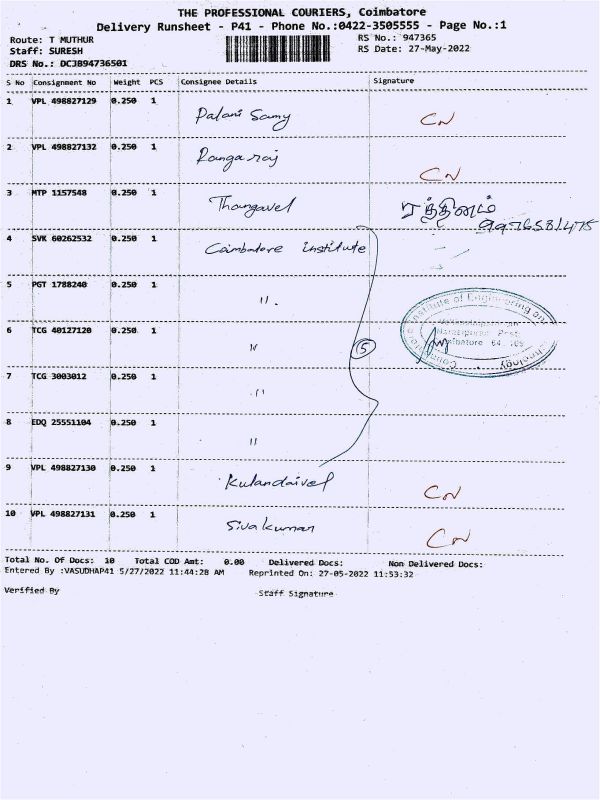 THE PROFESSIONAL COURIERS, Coimbatore
Delivery Runsheet - P41 - Phone No.:0422-3505555 - Page No.:1
Route: T MUTHUR
Staff: SURESH
DRS No.: DCJB94736501
RS No.: 947365
RS Date: 27-May-2022
S No Consignment No Weight PCS Consignee Details Signature
1 VPL 498827129 0.250 1 Palani Samy CN
2 VPL 498827132 0.250 1 Ranga raj CN
3 MTP 1157548 0.250 1 Thangavel ரத்தினம்
9976581475
4 SVK 60262532 0.250 1 Coimbatore institute
5 PGT 1788240 0.250 1 "
6 TCG 40127120 0.250 1 " 5
Institute of Engineering and
7 TCG 3003012 0.250 1 "
8 EDQ 25551104 0.250 1 "
9 VPL 498827130 0.250 1 Kulandaivel CN
10 VPL 498827131 0.250 1 Sivakumar CN
Total No. Of Docs: 10 Total COD Amt: 0.00 Delivered Docs: Non Delivered Docs:
Entered By :VASUDHAP41 5/27/2022 11:44:28 AM Reprinted On: 27-05-2022 11:53:32
Verified By Staff Signature